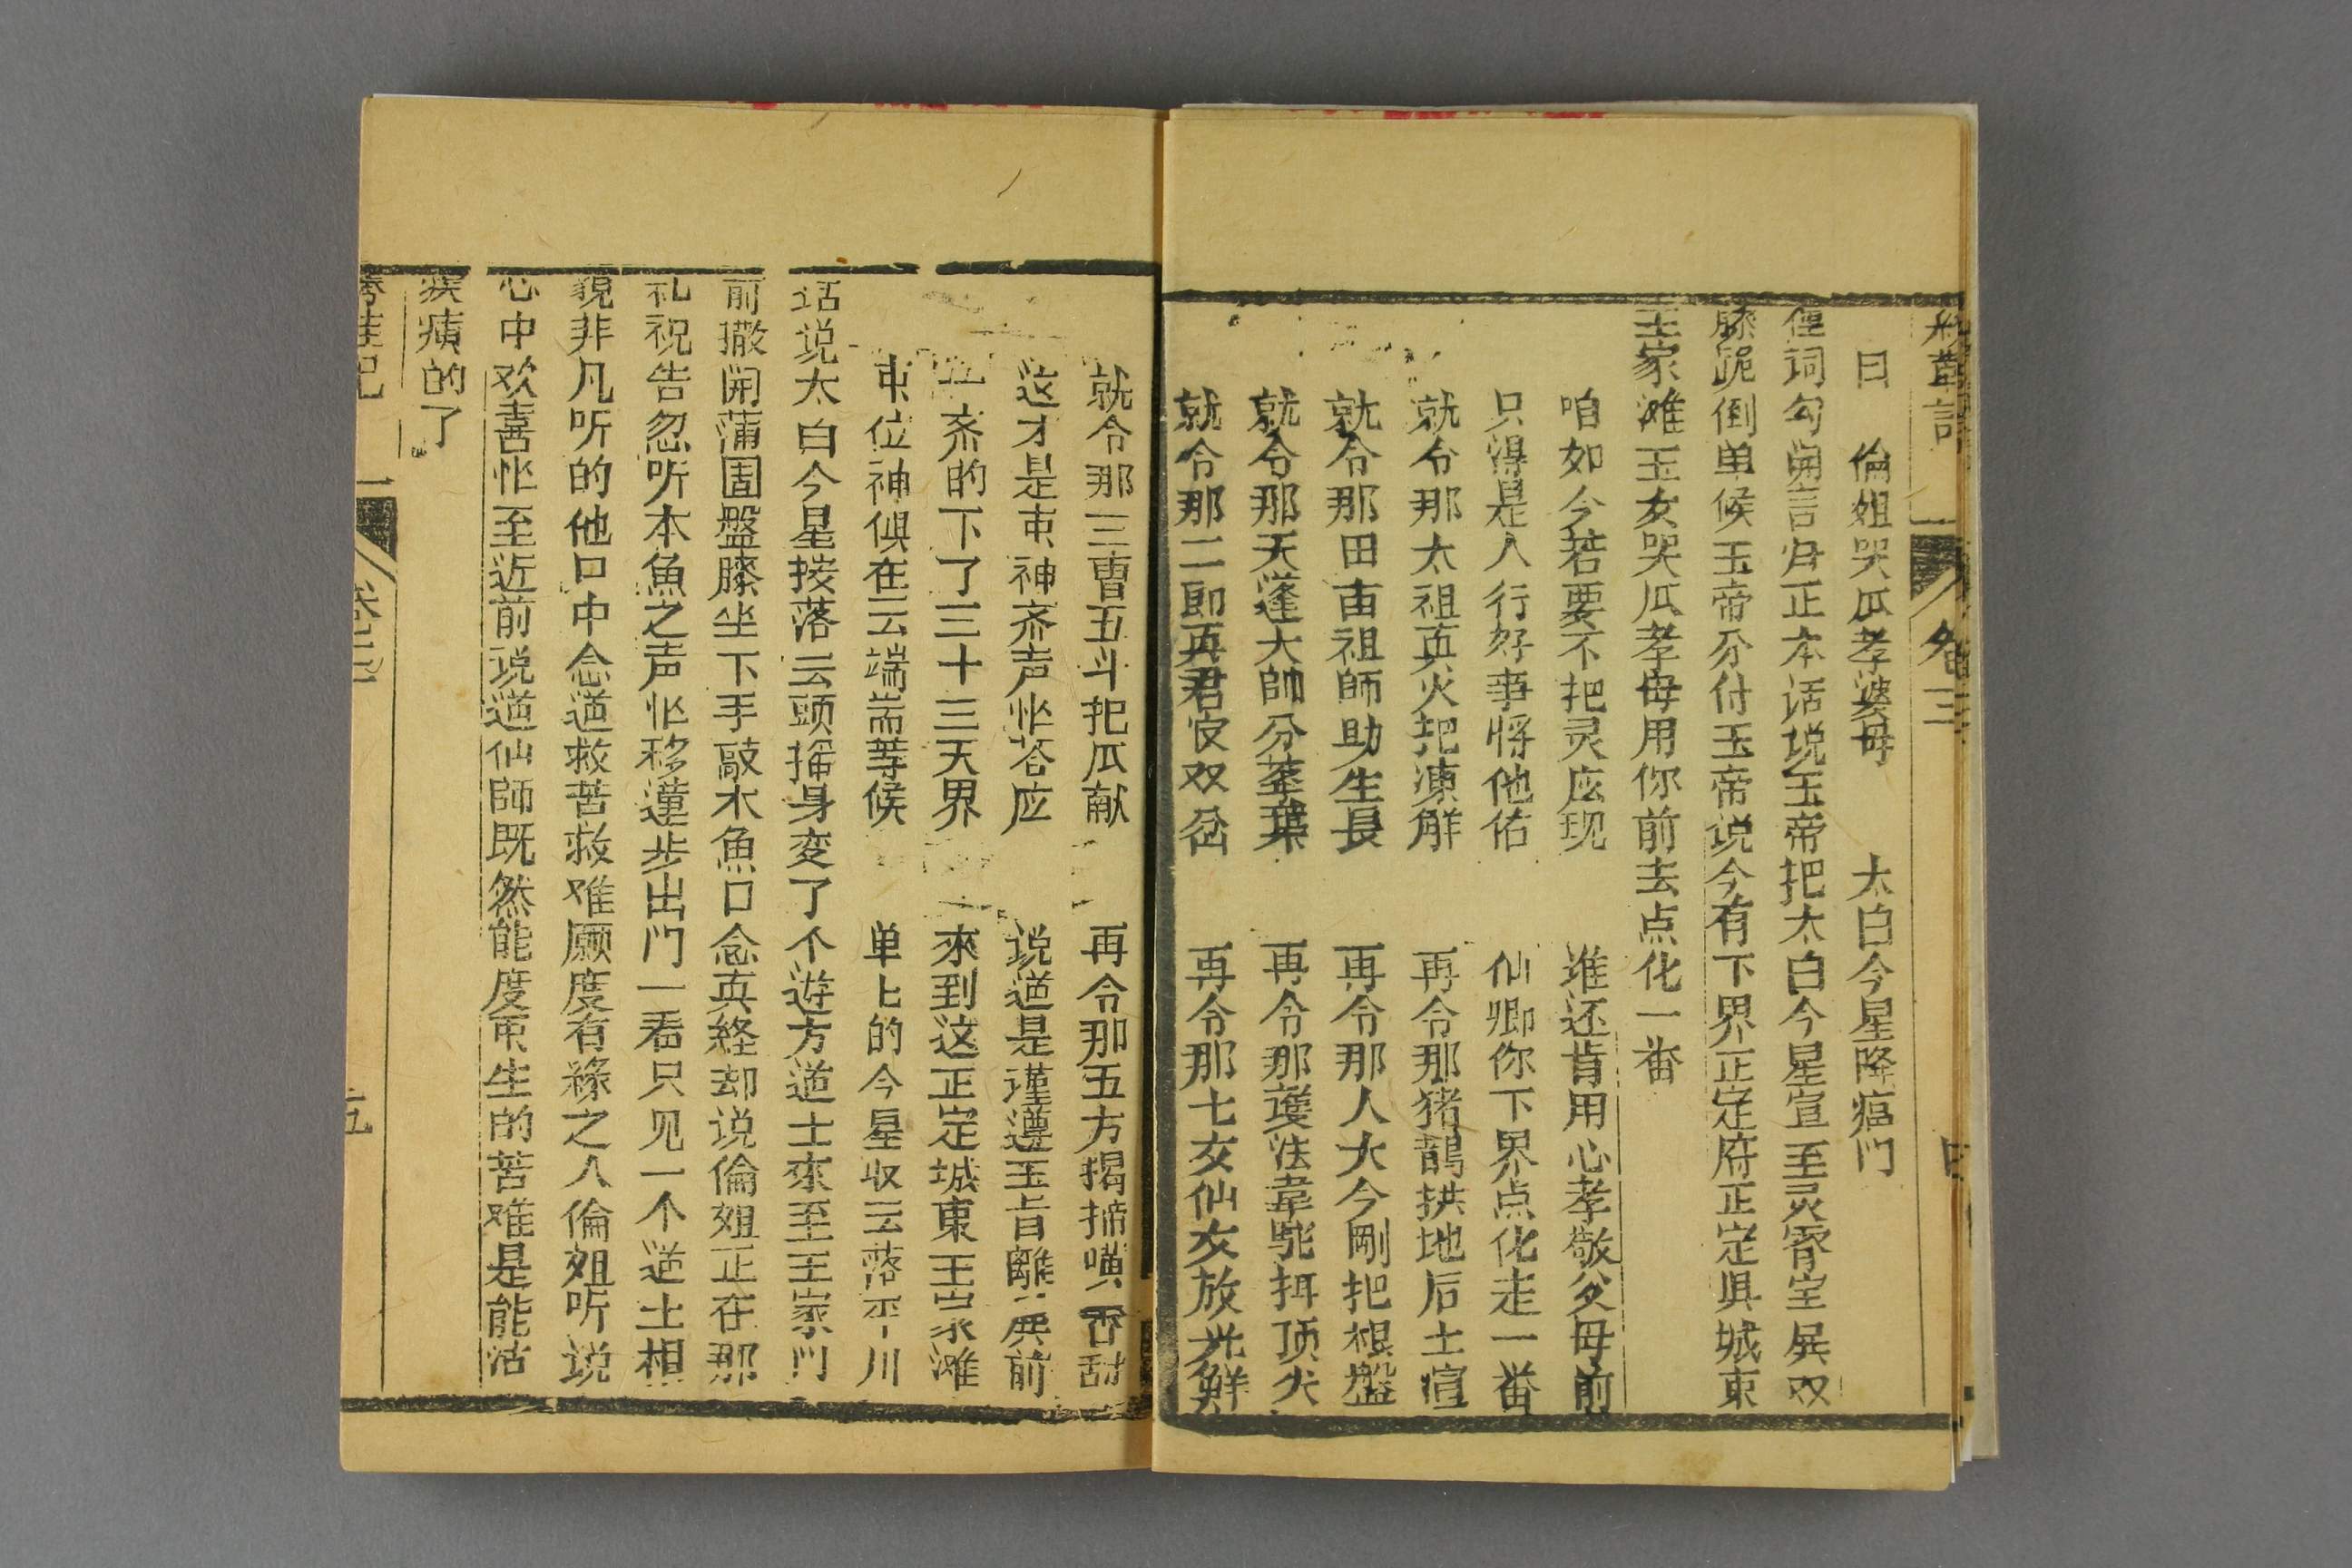 卷三
曰　倫姐哭瓜孝婆母　太白今星降瘟门
俚词勾開言归正本话说玉帝把太白今星宣至灵霄宝展双
膝跪倒单候玉帝分付玉帝说今有下界正定府正定具城東
王家滩玉女哭瓜孝母用你前去点化一畨
咱如今若要不把灵应现　谁还肯用心孝敬父母前
只得是人行好事将他佑　仙卿你下界点化走一畨
就令那太祖真火把凍解　再令那猪鵲拱地后土喧
就令那田苗祖師助生長　再令那人大今剛把根盤
就令那天蓬大帥分莖葉　再令那護法韋駝抇顶尖
就令那二郎真君安双岔　再令那七女仙女放光鮮
就令那三曹五斗把瓜献　再令那五方揭揥噴香甜
这才是束神齐声忙荅应　说道是谨遵玉旨離展前
一齐的下了三十三天界　來到这正定城東王家滩
束位神俱在云端耑等候　单上的今星収云落平川
话说太白今星按落云頭摇身变了个遊方道士來至王家门
前撒開蒲團盤膝坐下手敲木魚口念真経却说倫姐正在那
礼祝告忽听本魚之声忙移蓮步出门一看只见一个道士相
貌非凡听的他口中念道救苦救难愿度有緣之人倫姐听说
心中欢喜忙至近前说道仙師既然能度束生的苦难是能治
疾癀的了
五